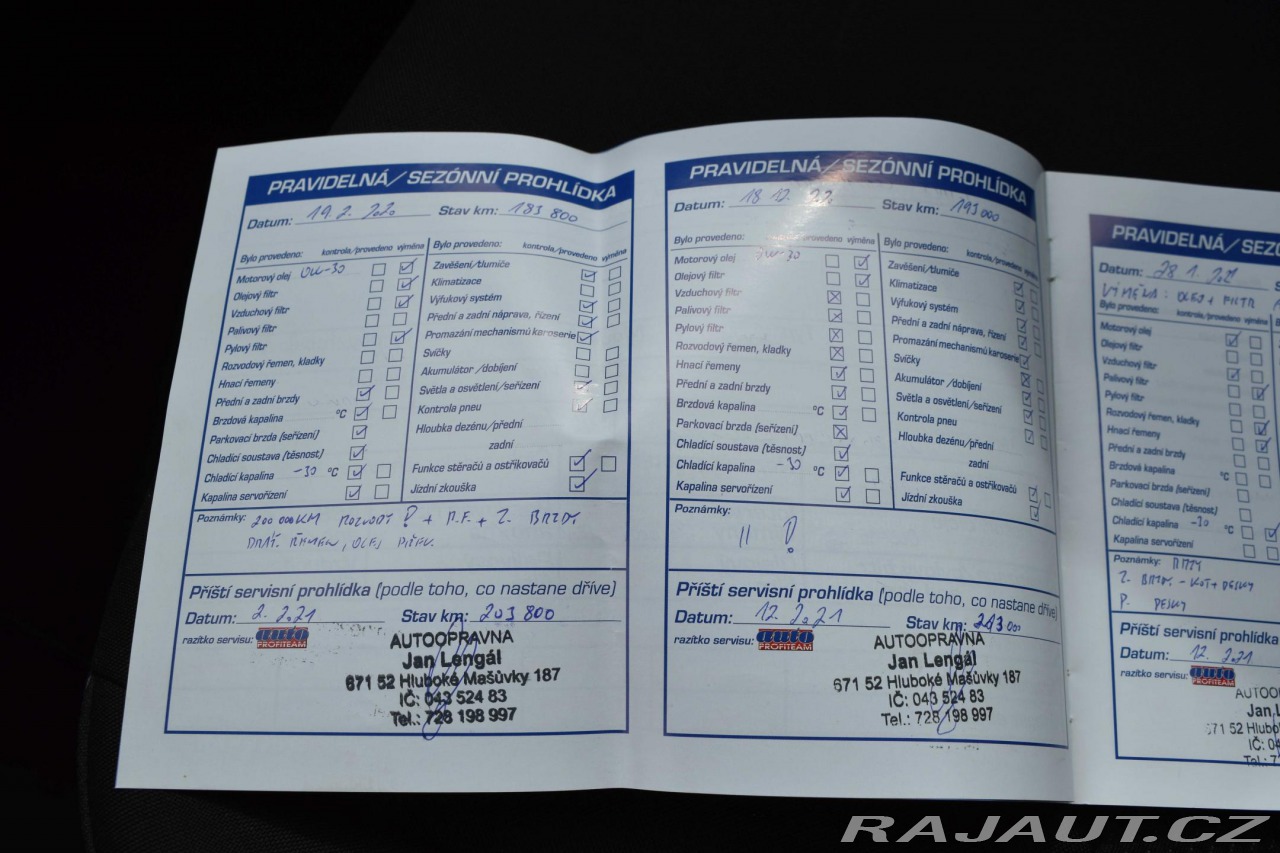 PRAVIDELNÁ/SEZÓNNÍ PROHLÍDKA
Datum: 19. 2. 2020 Stav km: 183 800
Bylo provedeno: kontrola/provedeno výměna
Motorový olej 0W-30
Olejový filtr
Vzduchový filtr
Palivový filtr
Pylový filtr
Rozvodový řemen, kladky
Hnací řemeny
Přední a zadní brzdy
Brzdová kapalina °C
Parkovací brzda (seřízení)
Chladící soustava (těsnost)
Chladící kapalina -30 °C
Kapalina servořízení
Bylo provedeno: kontrola/provedeno výměna
Zavěšení/tlumiče
Klimatizace
Výfukový systém
Přední a zadní náprava, řízení
Promazání mechanismů karoserie
Svíčky
Akumulátor /dobíjení
Světla a osvětlení/seřízení
Kontrola pneu
Hloubka dezénu/přední
zadní
Funkce stěračů a ostřikovačů
Jízdní zkouška
Poznámky: 200 000KM ROZVODY ! + P.F. + Z. BRZDY
OLEJ
Příští servisní prohlídka (podle toho, co nastane dříve)
Datum: 2. 2021 Stav km: 203 800
razítko servisu: auto PROFITEAM
AUTOOPRAVNA
Jan Lengál
671 52 Hluboké Mašůvky 187
IČ: 043 524 83
Tel.: 728 198 997
PRAVIDELNÁ/SEZÓNNÍ PROHLÍDKA
Datum: 18 12. Stav km: 193 000
Bylo provedeno: kontrola/provedeno výměna
Motorový olej 0W-30
Olejový filtr
Vzduchový filtr
Palivový filtr
Pylový filtr
Rozvodový řemen, kladky
Hnací řemeny
Přední a zadní brzdy
Brzdová kapalina °C
Parkovací brzda (seřízení)
Chladící soustava (těsnost)
Chladící kapalina -30 °C
Kapalina servořízení
Bylo provedeno: kontrola/provedeno
Zavěšení/tlumiče
Klimatizace
Výfukový systém
Přední a zadní náprava, řízení
Promazání mechanismů karoserie
Svíčky
Akumulátor /dobíjení
Světla a osvětlení/seřízení
Kontrola pneu
Hloubka dezénu/přední
zadní
Funkce stěračů a ostřikovačů
Jízdní zkouška
Poznámky:
11 !
Příští servisní prohlídka (podle toho, co nastane dříve)
Datum: 12. 2021 Stav km: 213 000
razítko servisu: auto PROFITEAM
AUTOOPRAVNA
Jan Lengál
671 52 Hluboké Mašůvky 187
IČ: 043 524 83
Tel.: 728 198 997
PRAVIDELNÁ/SEZ
Datum: 28 1. 2021 S
VÝMĚNA: OLEJ + FILTR
Bylo provedeno: kontrola/provedeno výměna
Motorový olej
Olejový filtr
Vzduchový filtr
Palivový filtr
Pylový filtr
Rozvodový řemen, kladky
Hnací řemeny
Přední a zadní brzdy
Brzdová kapalina
Parkovací brzda (seřízení)
Chladící soustava (těsnost)
Chladící kapalina -30 °C
Kapalina servořízení
Poznámky:
Z. BRZDY - KOT+ DESKY
P. DESKY
Příští servisní prohlídka
Datum: 12. 2021
razítko servisu: auto PROFITEAM
AUTOO
Jan L
71 52 Hlubo
IČ: 04
Tel.: 7
RAJAUT.CZ